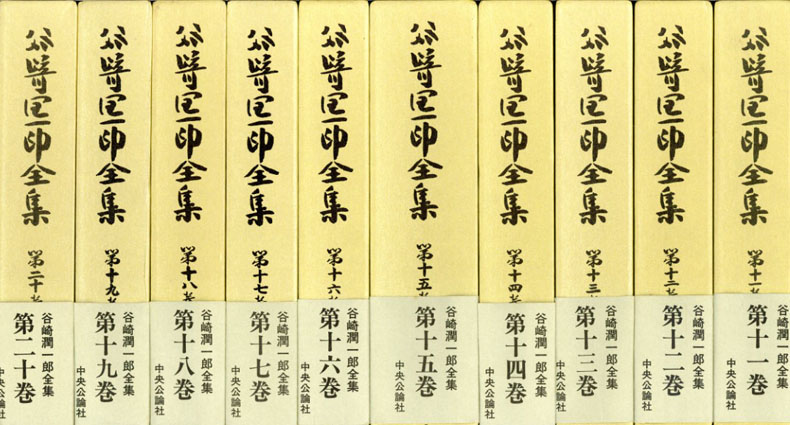 谷崎潤一郎全集
第十一巻
谷崎潤一郎全集
第十一巻
中央公論社
谷崎潤一郎全集
第十二巻
谷崎潤一郎全集
第十二巻
中央公論社
谷崎潤一郎全集
第十三巻
谷崎潤一郎全集
第十三巻
中央公論社
谷崎潤一郎全集
第十四巻
谷崎潤一郎全集
第十四巻
中央公論社
谷崎潤一郎全集
第十五巻
谷崎潤一郎全集
第十五巻
中央公論社
谷崎潤一郎全集
第十六巻
谷崎潤一郎全集
第十六巻
中央公論社
谷崎潤一郎全集
第十七巻
谷崎潤一郎全集
第十七巻
中央公論社
谷崎潤一郎全集
第十八巻
谷崎潤一郎全集
第十八巻
中央公論社
谷崎潤一郎全集
第十九巻
谷崎潤一郎全集
第十九巻
中央公論社
谷崎潤一郎全集
第二十巻
谷崎潤一郎全集
第二十巻